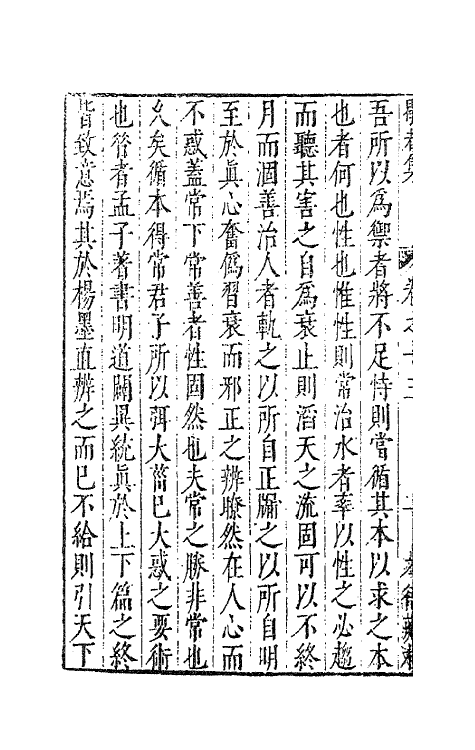 卷之十三
吾所以爲禦者將不足恃則當循其本以求之本
也者何也性也惟性則常治水者率以性之必趨
而聽其害之自爲衰止則滔天之流固可以不終
月而涸善治人者軌之以所自正牖之以所自明
至於眞心奮僞習衰而邪正之辨瞭然在人心而
不惑蓋常下常善者性固然也夫常之勝非常也
久矣循本得常君子所以弭大菑已大惑之要術
也昝者孟子著書明道闢異統眞於上下篇之終
皆致意焉其於楊墨直辨之而已不給則引天下